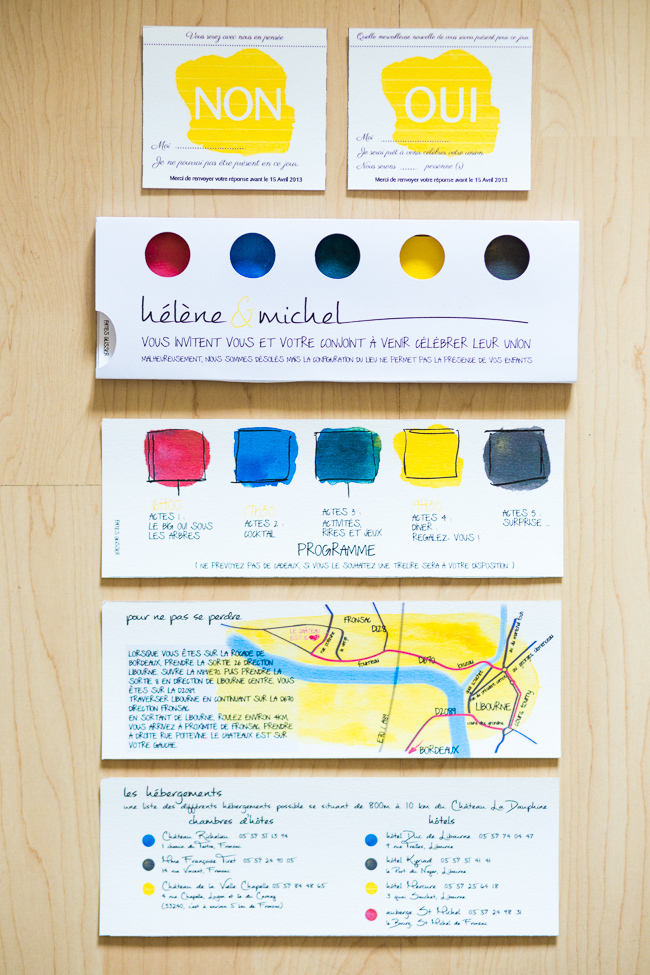 Vous serez avec nous en pensée
NON
Moi
Je ne pourrai pas être présent en ce jour
Merci de renvoyer votre réponse avant le 15 Avril 2013
Quelle merveilleuse nouvelle de vous savoir présent pour ce jour
OUI
Moi
Je serai prêt à venir célébrer votre union
Nous serons ...... personne (s)
Merci de renvoyer votre réponse avant le 15 Avril 2013
hélène & michel
VOUS INVITENT VOUS ET VOTRE CONJOINT À VENIR CÉLÉBRER LEUR UNION
MALHEUREUSEMENT, NOUS SOMMES DÉSOLÉS MAIS LA CONFIGURATION DU LIEU NE PERMET PAS LA PRÉSENCE DE VOS ENFANTS
FAITES GLISSER
ACTES 1 :
LE BIG OUI SOUS
LES ARBRES
17H30
ACTES 2 :
COCKTAIL
ACTES 3 :
ACTIVITÉS,
RIRES ET JEUX
ACTES 4 :
DINER :
REGALEZ- VOUS !
ACTES 5 :
SURPRISE ...
PROGRAMME
( NE PREVOYEZ PAS DE CADEAUX, SI VOUS LE SOUHAITEZ UNE TIRELIRE SERA À VOTRE DISPOSITION )
pour ne pas se perdre
LORSQUE VOUS ÊTES SUR LA ROCADE DE
BORDEAUX, PRENDRE LA SORTIE 26 DIRECTION
LIBOURNE. SUIVRE LA PUIS PRENDRE LA
SORTIE 8 EN DIRECTION DE LIBOURNE CENTRE. VOUS
ÊTES SUR LA D2089.
TRAVERSER LIBOURNE EN CONTINUANT SUR LA D670
DIRECTION FRONSAC
EN SORTANT DE LIBOURNE, ROULEZ ENVIRON 4KM,
VOUS ARRIVEZ À PROXIMITÉ DE FRONSAC. PRENDRE
À DROITE RUE POITEVINE. LE CHATEAUX EST SUR
VOTRE GAUCHE.
LE CHÂTEAU
EST ICI
FRONSAC
D128
tourneau
D670
LIBOURNE
cours tourny
D2089
BORDEAUX
les hébergements
une liste des différents hébergements possible se situant de 800m à 10 km du Château La Dauphine
chambres d'hôtes
Château Richelieu 05 57 51 13 94
1 chemin du Tertre, Fronsac
Mme Françoise Turet 05 57 24 90 05
14 rue Vincent, Fronsac
Château de la Vieille Chapelle 05 57 84 48 65
4 rue Chapelle, Lugon et île du Carney
(33240, c'est à environ 5 km de Fronsac)
hôtels
hôtel Duc de Libourne 05 57 74 04 47
9 rue Treilles, Libourne
hôtel Kyriad 05 57 51 41 41
le Port du Noyer, Libourne
hôtel Mercure 05 57 25 64 18
3 quai Souchet, Libourne
auberge St Michel 05 57 24 98 31
le Bourg, St Michel de Fronsac